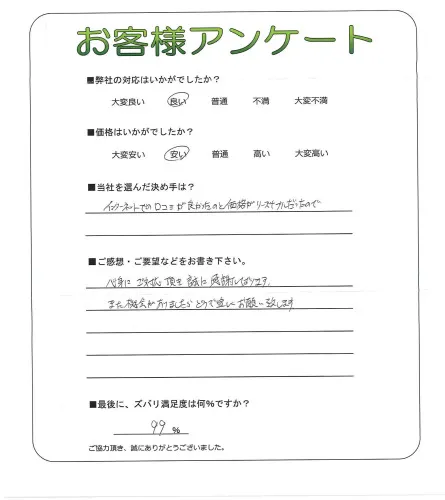 お客様アンケート
■弊社の対応はいかがでしたか？
大変良い 良い 普通 不満 大変不満
■価格はいかがでしたか？
大変安い 安い 普通 高い 大変高い
■当社を選んだ決め手は？
インターネットでの口コミが良かったのと価格がリーズナブルだったので
■ご感想・ご要望などをお書き下さい。
ご対応頂き誠に感謝しております。
また機会がありましたらどうぞ宜しくお願い致します
■最後に、ズバリ満足度は何%ですか？
99 %
ご協力頂き、誠にありがとうございました。